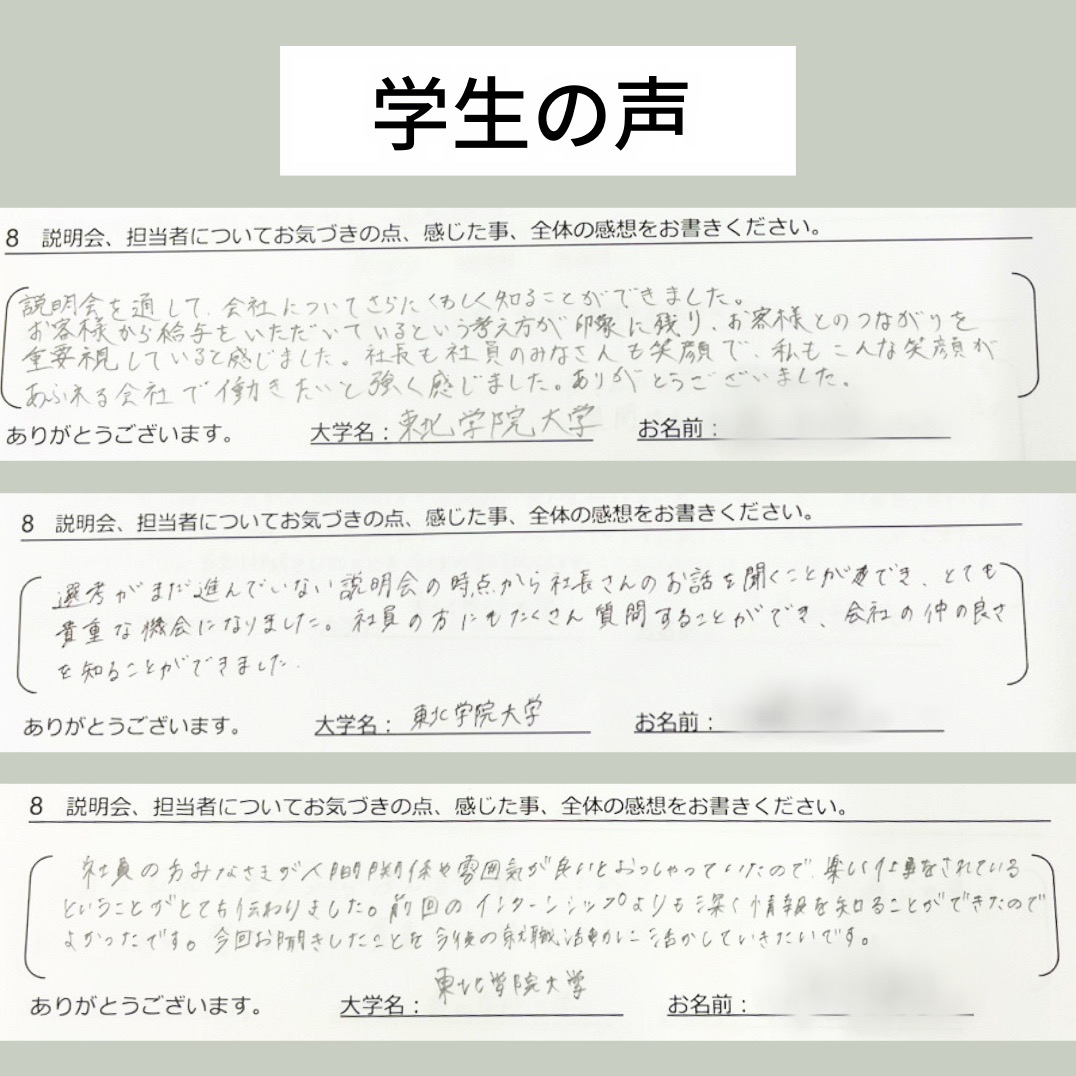 学生の声
8 説明会、担当者についてお気づきの点、感じた事、全体の感想をお書きください。
説明会を通して、会社についてさらにくわしく知ることができました。
お客様から給与をいただいているという考え方が印象に残り、お客様とのつながりを
重要視していると感じました。社長も社員のみなさんも笑顔で、私もこんな笑顔が
あふれる会社で働きたいと強く感じました。ありがとうございました。
ありがとうございます。 大学名：東北学院大学 お名前：
8 説明会、担当者についてお気づきの点、感じた事、全体の感想をお書きください。
選考がまだ進んでいない説明会の時点から社長さんのお話を聞くことができ、とても
貴重な機会になりました。社員の方にもたくさん質問することができ、会社の仲の良さ
を知ることができました.
ありがとうございます。 大学名：東北学院大学 お名前：
8 説明会、担当者についてお気づきの点、感じた事、全体の感想をお書きください。
社員の方みなさまが人間関係や雰囲気が良いとおっしゃっていたので、楽しい仕事をされている
ということがとても伝わりました。前回のインターンシップよりも深く情報を知ることができたので
よかったです。今回お聞きしたことを今後の就職活動に活かしていきたいです。
ありがとうございます。 大学名：東北学院大学 お名前：